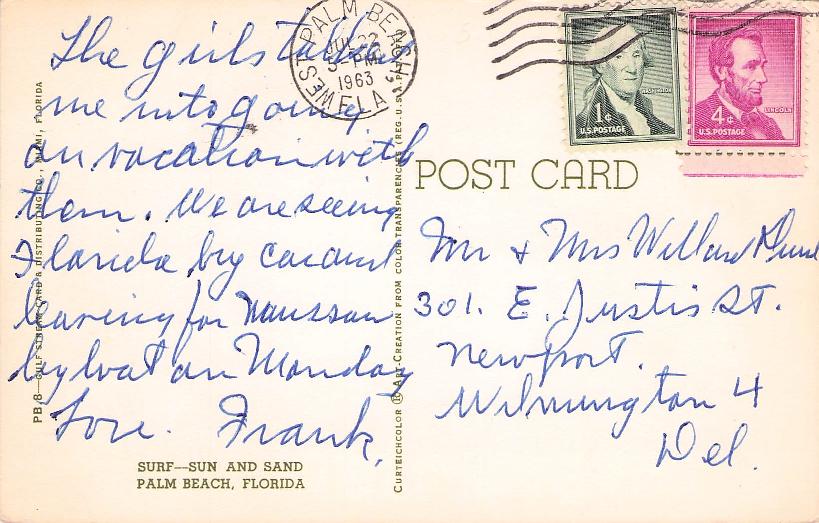 The girls talked
me into going
on vacation with
them. We are seeing
Florida by car and
leaving for Naussau
by boat on Monday
Love. Frank.
SURF—SUN AND SAND
PALM BEACH, FLORIDA
PB 8—GULF STREAM CARD & DISTRIBUTING CO., MIAMI, FLORIDA
CURTEICHCOLOR ® ART-CREATION FROM COLOR TRANSPARENCIES (REG. U.S.A. PAT.
WEST PALM BEACH, FLA
JUL 22
PM
1963
1¢
WASHINGTON
U.S. POSTAGE
4¢
LINCOLN
U.S. POSTAGE
POST CARD
Mr & Mrs Willard
301. E. Justis St.
Newport.
Wilmington 4
Del.